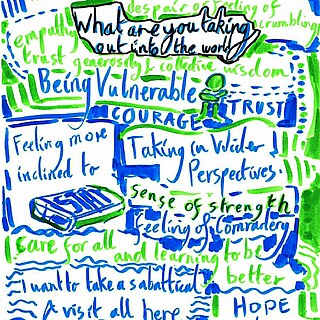 despair or feeling of
What are you taking
out into the world
crumbling
empathy
trust generosity & collective wisdom
Being Vulnerable
TRUST
COURAGE
Feeling more
inclined to
Taking in Wider
Perspectives
Sense of strength
feeling of Comradery
Care for all
and learning to be
better
I want to take a sabattical
A visit all here
HOPE